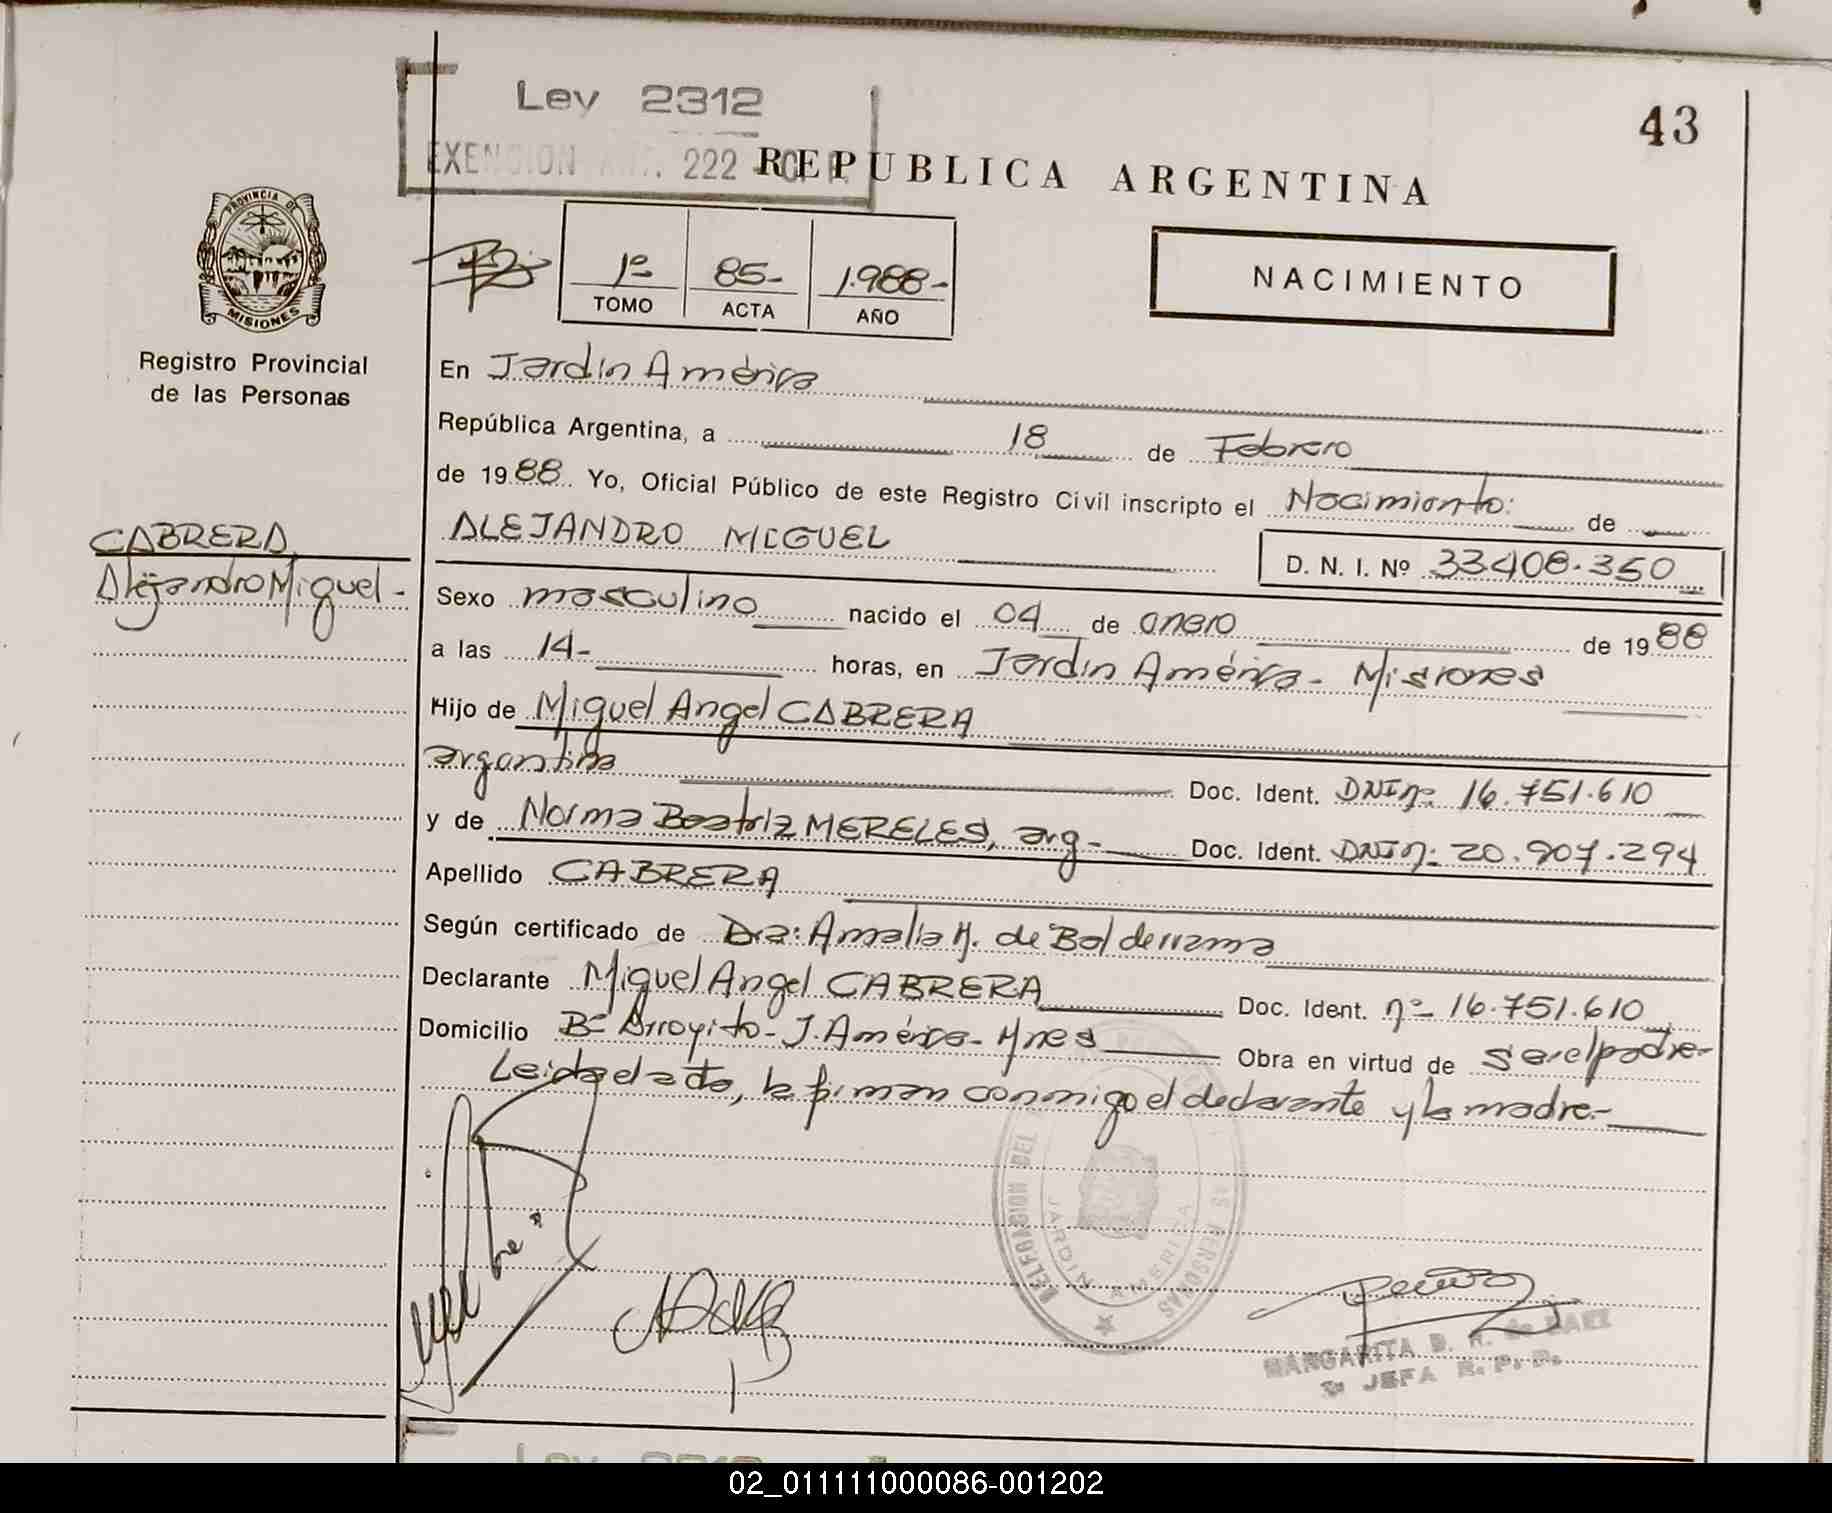 Ley 2312
EXENCION ART. 222
43
REPUBLICA ARGENTINA
PROVINCIA DE
MISIONES
Registro Provincial
de las Personas
1º 85- 1.988-
TOMO ACTA AÑO
NACIMIENTO
En Jardín América
República Argentina, a 18 de Febrero
de 1988 Yo, Oficial Público de este Registro Civil inscripto el Nacimiento: de
CABRERA
Alejandro Miguel-
ALEJANDRO MIGUEL
D. N. I. Nº 33408.350
Sexo masculino nacido el 04 de enero de 1988
a las 14- horas, en Jardín América- Misiones
Hijo de Miguel Angel CABRERA
argentina Doc. Ident. DNI nº 16.751.610
y de Norma Beatriz MERELES, arg- Doc. Ident. DNI nº 20.907.294
Apellido CABRERA
Según certificado de Dra: Amalia M. de Balderrama
Declarante Miguel Angel CABRERA Doc. Ident. nº 16.751.610
Domicilio Bº Arroyito- J. América- Mnes Obra en virtud de ser el padre-
Leida el acta, la firman conmigo el declarante y la madre.-
DELEGACION DEL AS PERSONAS
JARDIN AMERICA
MARGARITA B. R. de BAEZ
JEFA R. P. P.
Ley 2312
02_011111000086-001202